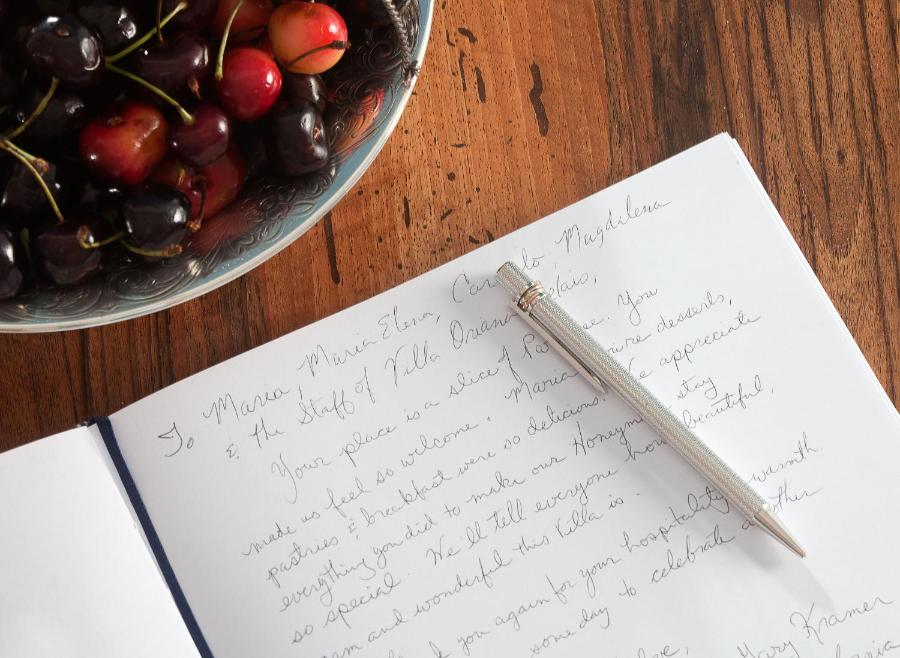 To Maria, Maria Elena, Magdalena
& the Staff of Villa
Your place is a slice of You
made us feel so welcome. Maria desserts,
pastries & breakfast were so delicious. appreciate
everything you did to make our stay
so special. We'll tell everyone how beautiful,
and wonderful this Villa is.
you again for your hospitality warmth.
some day to celebrate another
Mary Kramer